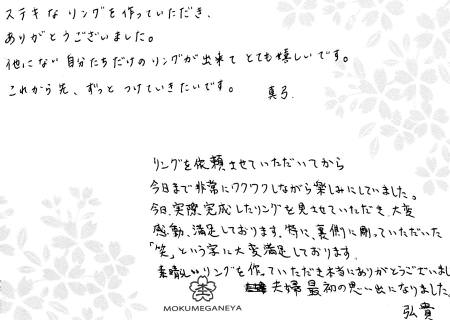 ステキなリングを作っていただき、
ありがとうございました。
他にない自分たちだけのリングが出来てとても嬉しいです。
これから先、ずっとつけていきたいです。
真弓.
リングを依頼させていただいてから
今日まで非常にワクワクしながら楽しみにしていました。
今日、実際完成したリングを見させていただき、大変
感動、満足しております。特に、裏側に剛っていただいた
「笑」という字に大変満足しております.
素晴しいリングを作っていただき本当にありがとうございまし
夫婦最初の思い出になりました。
弘貴
MOKUMEGANEYA